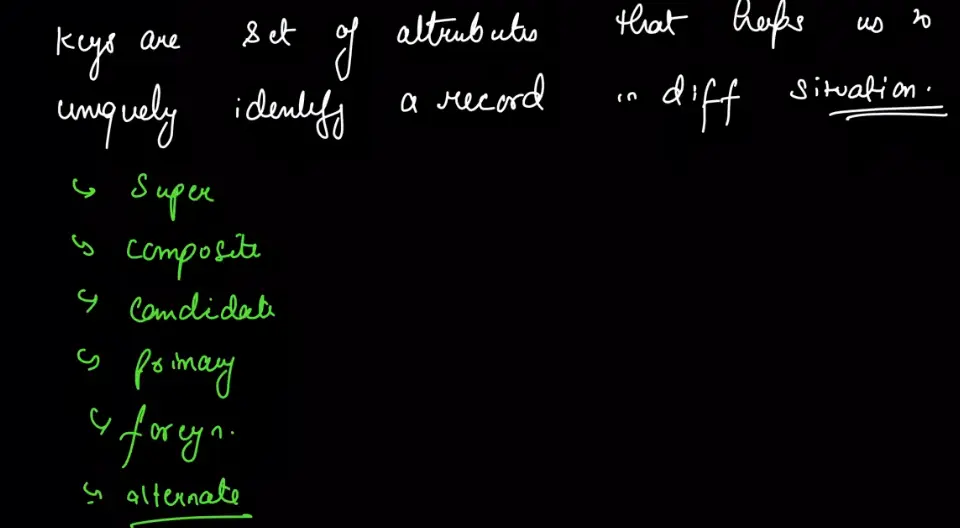 Keys are set of attributes that helps us to
uniquely identify a record in diff situation.
↳ Super
↳ Composite
↳ Candidate
↳ Primary
↳ foreign.
↳ alternate